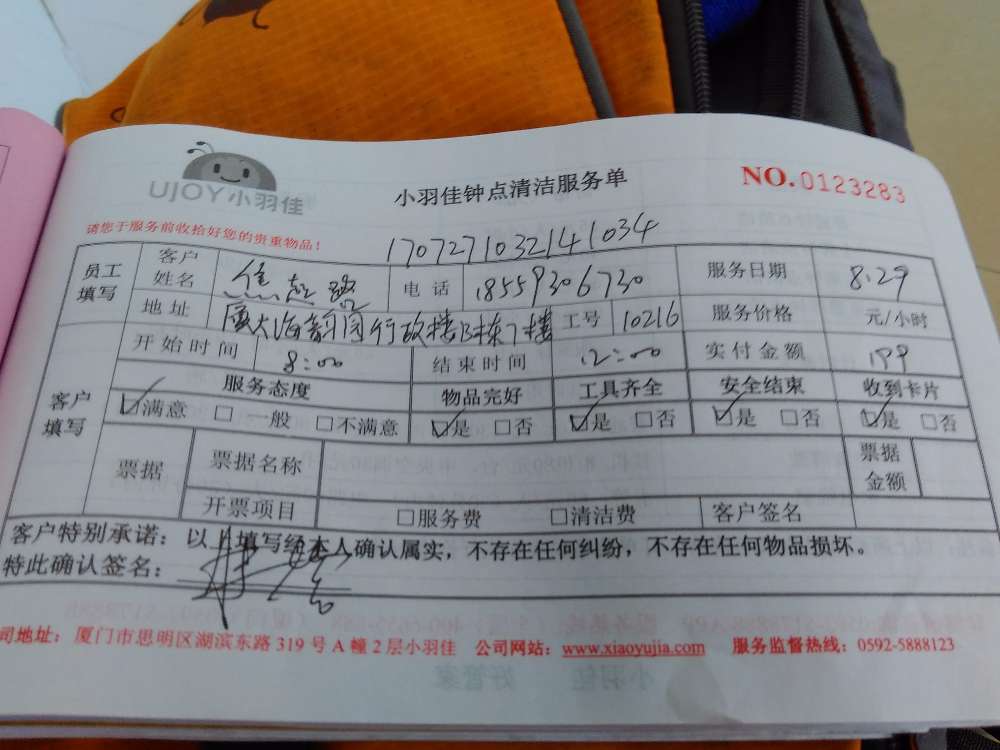 UJOY小羽佳
小羽佳钟点清洁服务单
NO.0123283
请您于服务前收拾好您的贵重物品!
1707271032141034
员工填写 客户姓名 焦 电话 18559306730 服务日期 8.29
地址 厦大海韵园行政楼B栋7楼 工号 10216 服务价格 元/小时
客户填写 开始时间 8:00 结束时间 12:00 实付金额 199
服务态度 物品完好 工具齐全 安全结束 收到卡片
☑满意 □一般 □不满意 ☑是 □否 ☑是 □否 ☑是 □否 ☑是 □否
票据 票据名称 票据金额
开票项目 □服务费 □清洁费 客户签名
客户特别承诺:以上填写经本人确认属实,不存在任何纠纷,不存在任何物品损坏。
特此确认签名:
司地址:厦门市思明区湖滨东路 319 号 A 幢 2 层小羽佳 公司网站:www.xiaoyujia.com 服务监督热线:0592-5888123